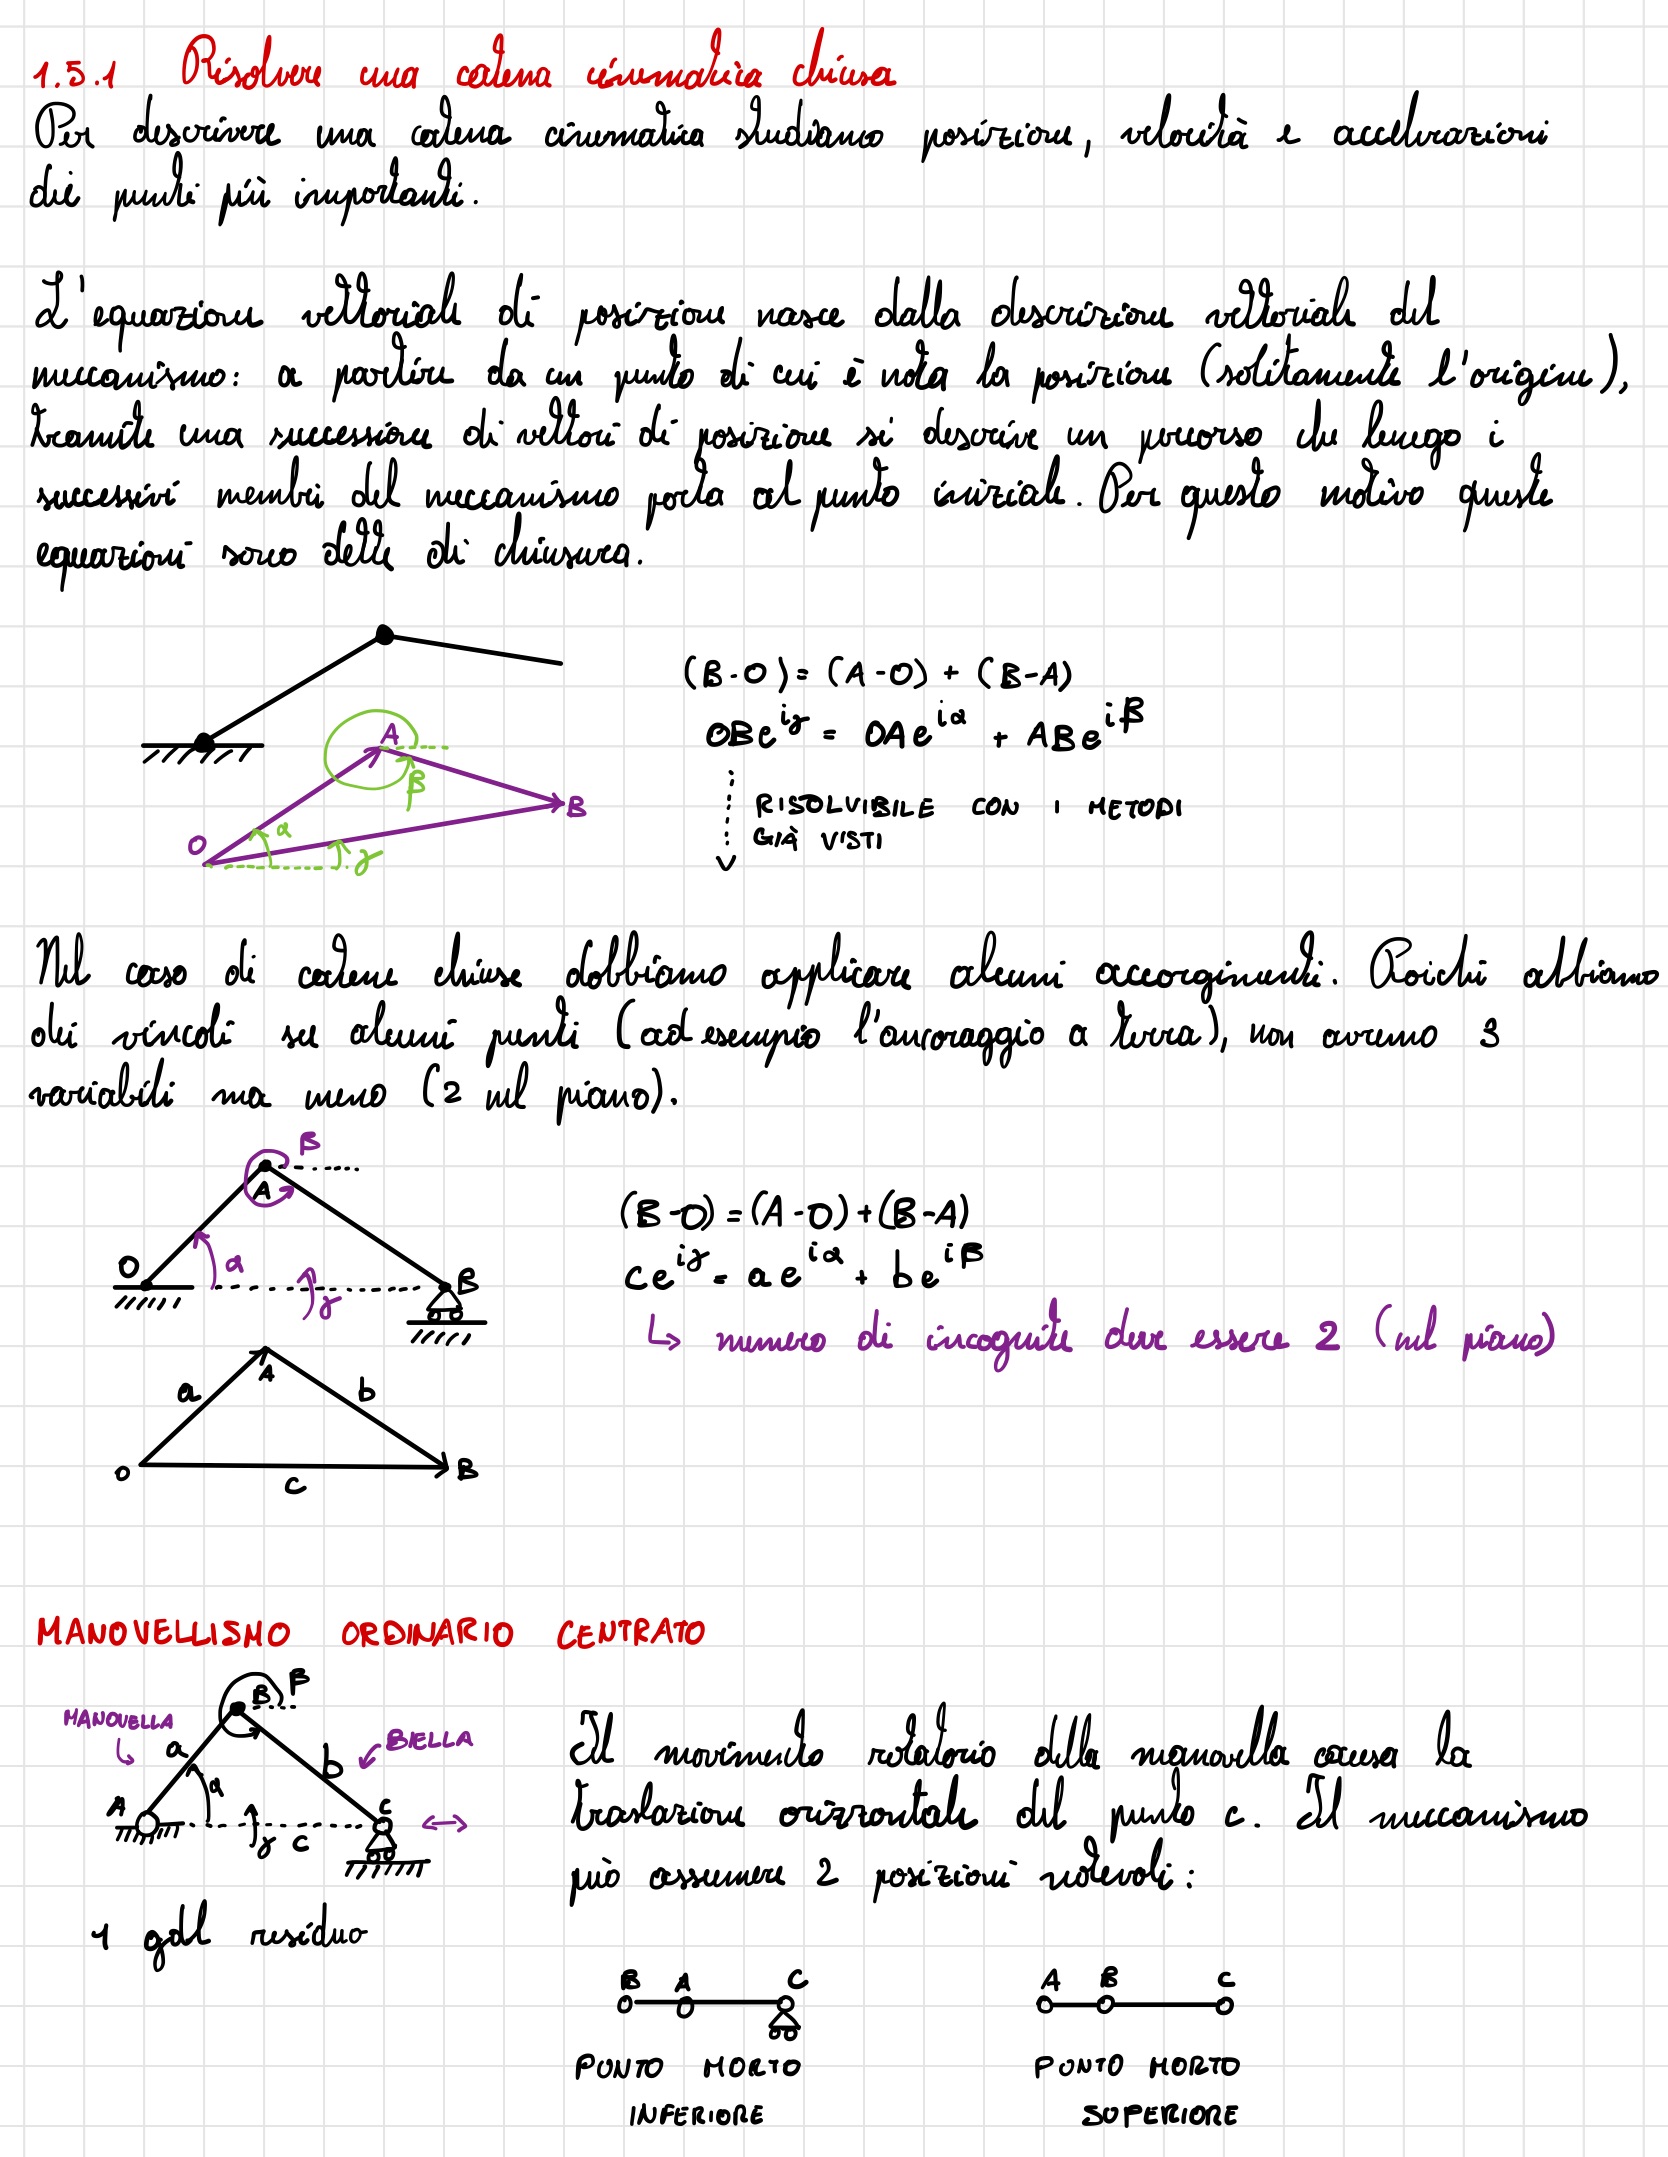 1.5.1 Risolvere una catena cinematica chiusa
Per descrivere una catena cinematica studiamo posizione, velocità e accelerazioni
dei punti più importanti.
L'equazione vettoriale di posizione nasce dalla descrizione vettoriale del
meccanismo: a partire da un punto di cui è nota la posizione (solitamente l'origine),
tramite una successione di vettori di posizione si descrive un percorso che lungo i
successivi membri del meccanismo porta al punto iniziale. Per questo motivo queste
equazioni sono dette di chiusura.
(B-O) = (A-O) + (B-A)
OBe^{iγ} = OAe^{iα} + ABe^{iβ}
A
β
B
O
α
γ
RISOLVIBILE CON I METODI
GIÀ VISTI
Nel caso di catene chiuse dobbiamo applicare alcuni accorgimenti. Poichè abbiamo
dei vincoli su alcuni punti (ad esempio l'ancoraggio a terra), non avremo 3
variabili ma meno (2 nel piano).
β
A
O
α
γ
B
(B-O) = (A-O) + (B-A)
ce^{iγ} = ae^{iα} + be^{iβ}
↳ numero di incognite deve essere 2 (nel piano)
A
a
b
O
B
c
MANOVELLISMO ORDINARIO CENTRATO
B β
MANOVELLA
a
b
BIELLA
A
α
C
γ c
1 gdl residuo
Il movimento rotatorio della manovella causa la
traslazione orizzontale del punto c. Il meccanismo
può assumere 2 posizioni notevoli:
B A C
PUNTO MORTO
INFERIORE
A B C
PUNTO MORTO
SUPERIORE